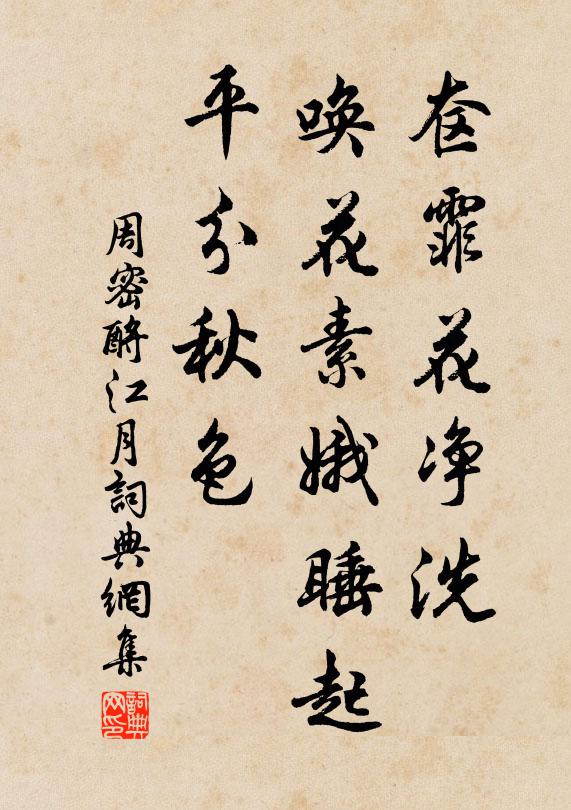 奁霏花净洗
唤花素娥睡起
平分秋色
周密酹江月詞典網集
詞典网印